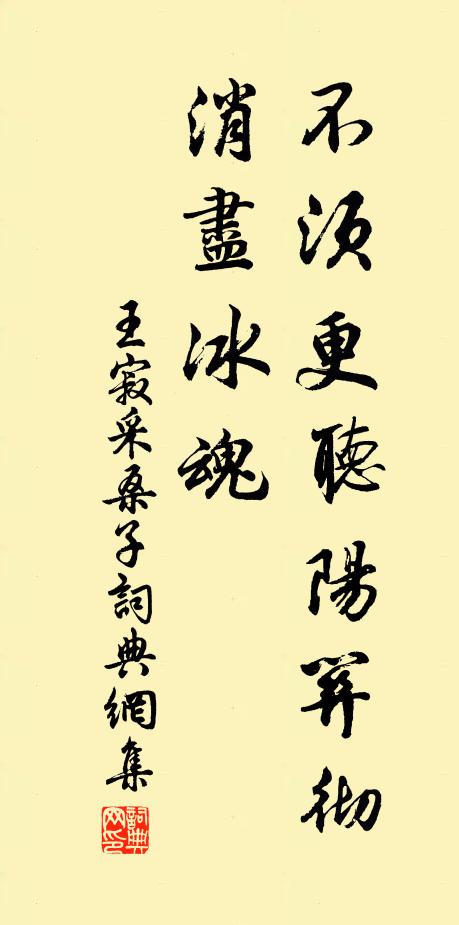 不須更聽陽關彻
消盡冰魂
王寂采桑子詞典網集
詞典网印